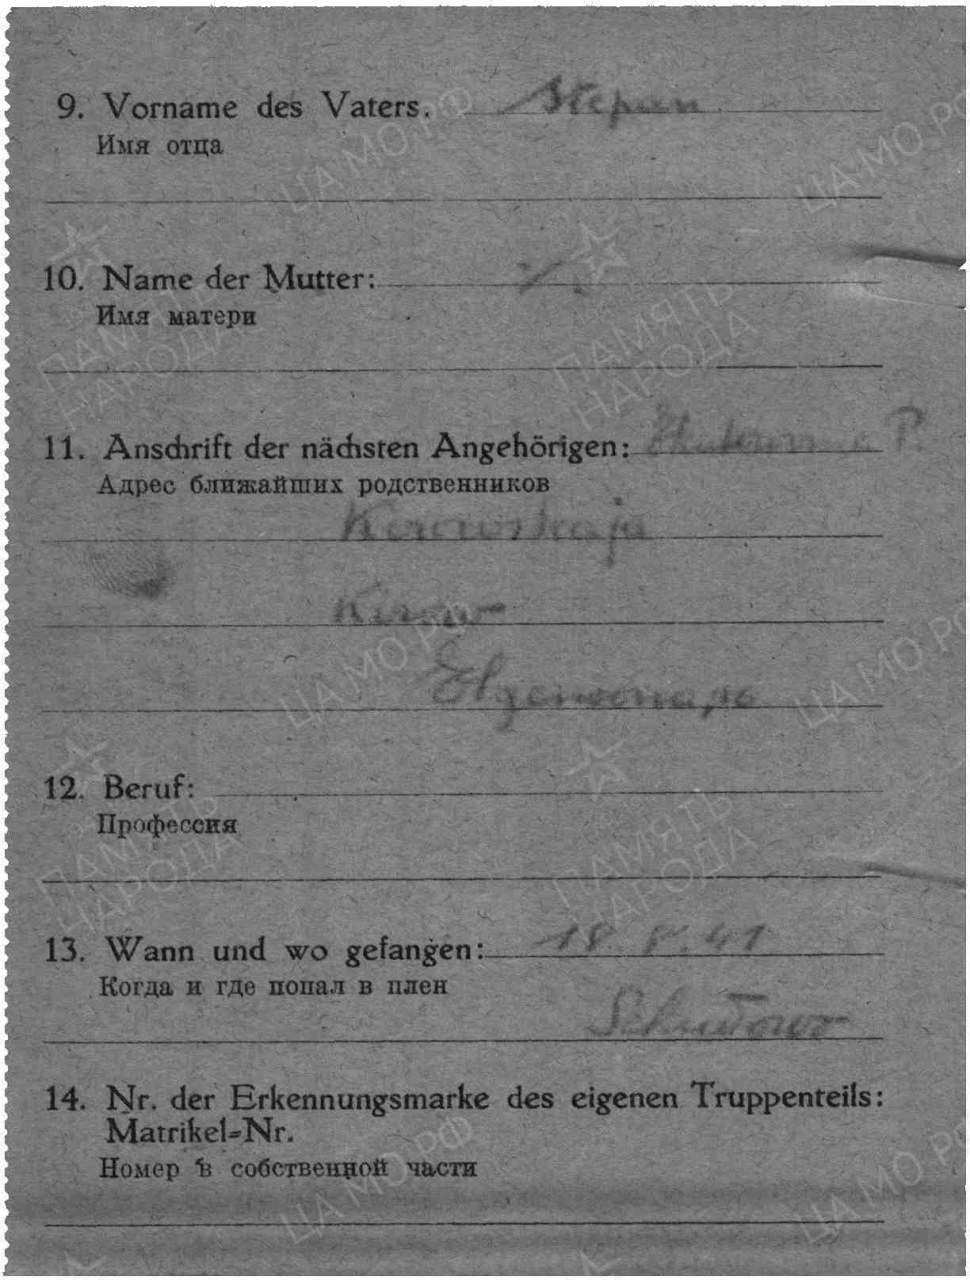 9. Vorname des Vaters. Stepan
Имя отца
10. Name der Mutter: ./.
Имя матери
11. Anschrift der nächsten Angehörigen: P.
Адрес ближайших родственников
Kirowskaja
Kirow
12. Beruf:
Профессия
13. Wann und wo gefangen: 18. 8. 41
Когда и где попал в плен
14. Nr. der Erkennungsmarke des eigenen Truppenteils:
Matrikel-Nr.
Номер в собственной части
ЦА МО РФ
ЦА МО РФ
ПАМЯТЬ НАРОДА
ПАМЯТЬ НАРОДА
ЦА МО РФ
ЦА МО РФ
ПАМЯТЬ НАРОДА
ПАМЯТЬ НАРОДА
ЦА МО РФ
ЦА МО РФ